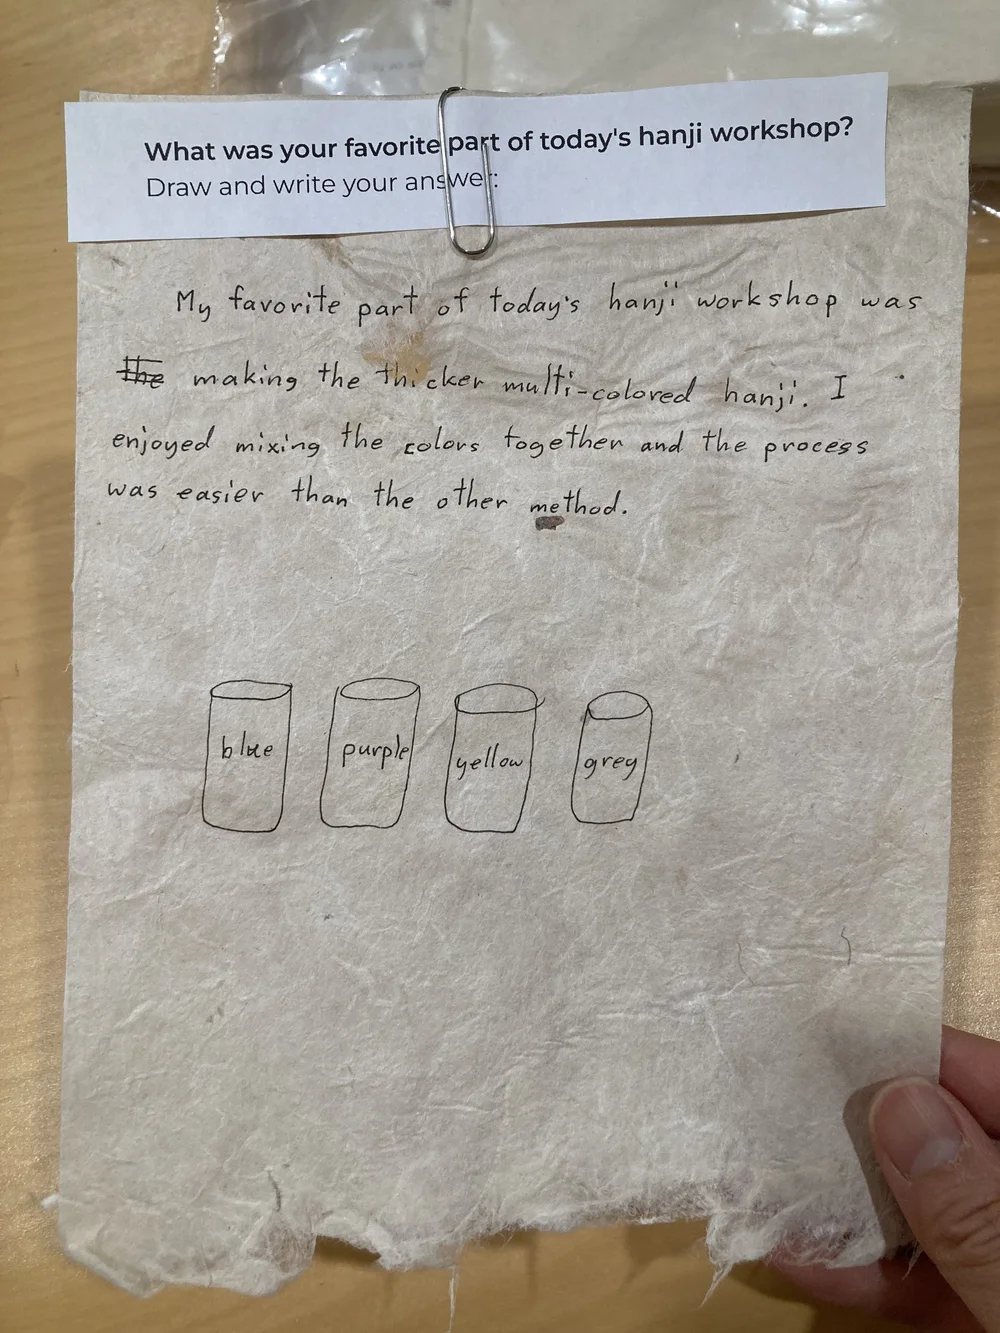 What was your favorite part of today's hanji workshop?
Draw and write your answer:
My favorite part of today's hanji workshop was
the making the thicker multi-colored hanji. I
enjoyed mixing the colors together and the process
was easier than the other method.
blue purple yellow grey